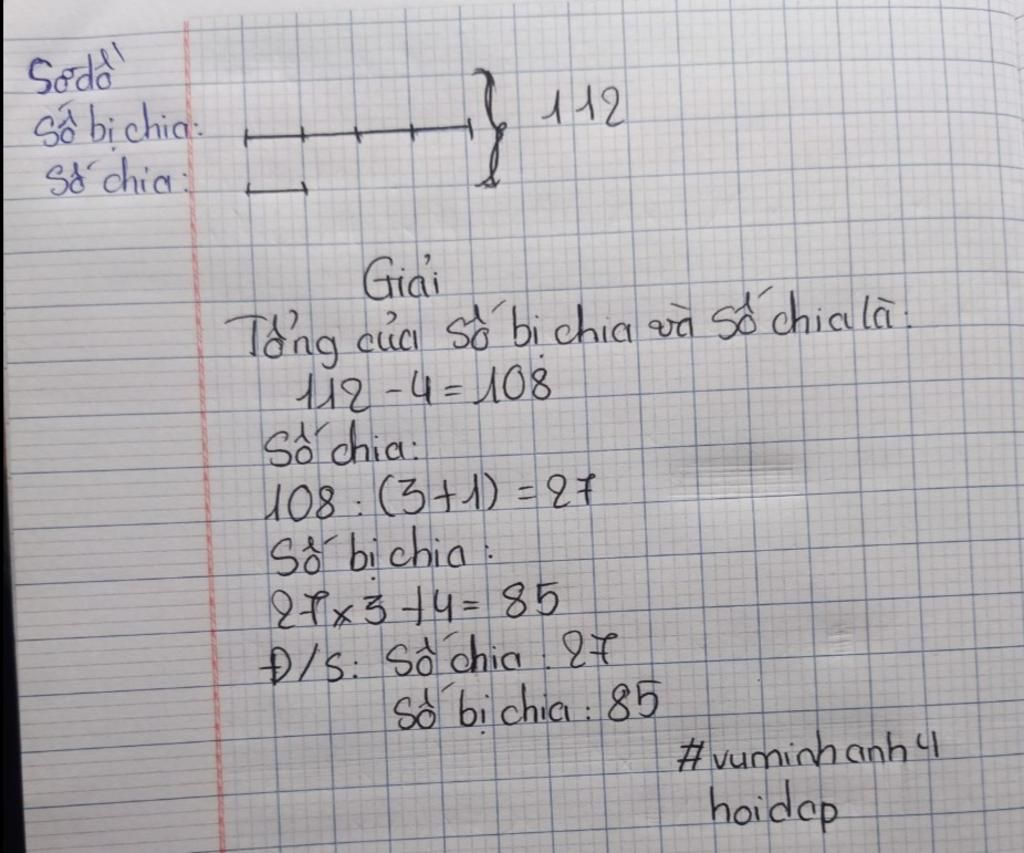 Sơ đồ
Số bị chia:
112
Số chia:
Giải
Tổng của số bị chia và số chia là:
112 - 4 = 108
Số chia:
108 : (3+1) = 27
Số bị chia:
27 x 3 + 4 = 85
Đ/S: Số chia: 27
Số bị chia: 85
#vuminhanh4
hoidap